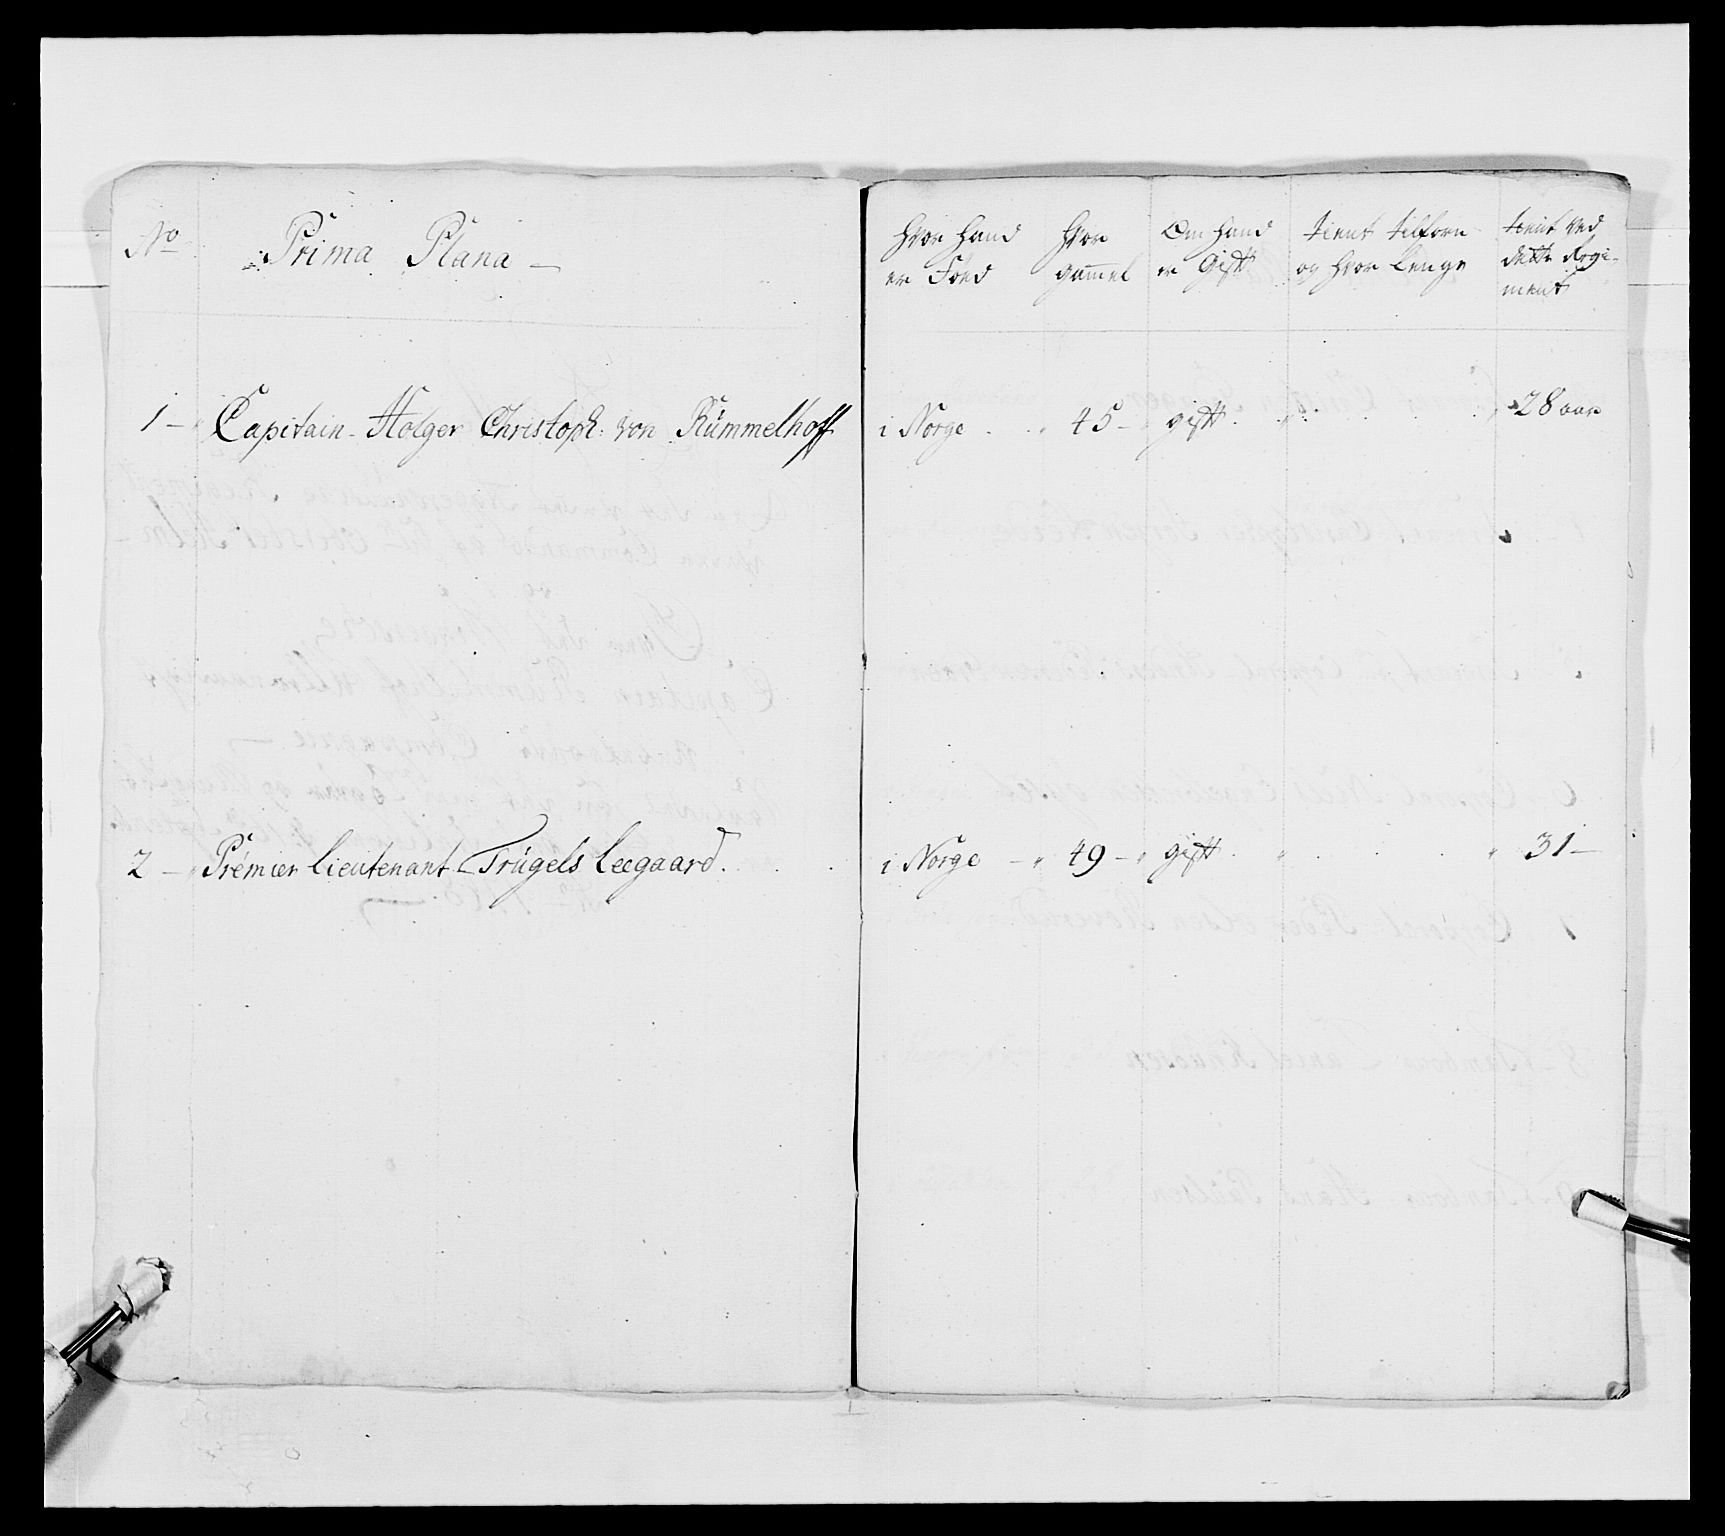 No
Prima Plana
Hvor Hand er Föed
Hvor gammel
Om Hand er Gift
tient tilforn og Hvor Lenge
tient ved dette Regiment
1 Capitain Holger Christoph: von Rümmelhoff
i Norge 45 gift 28 aar
2 Premier Lieutenant Trügels Leegaard
i Norge 49 gift 31